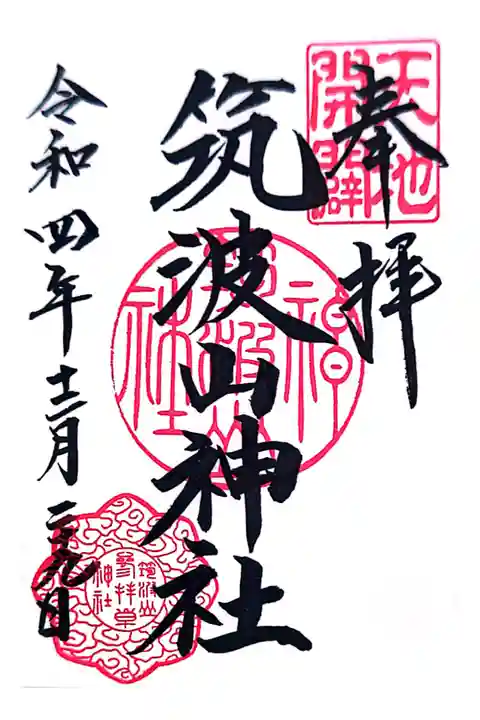 奉拝
天地
開闢
筑波山神社
筑波山
神社
令和四年十二月二十九日
筑波山
参拝章
神社